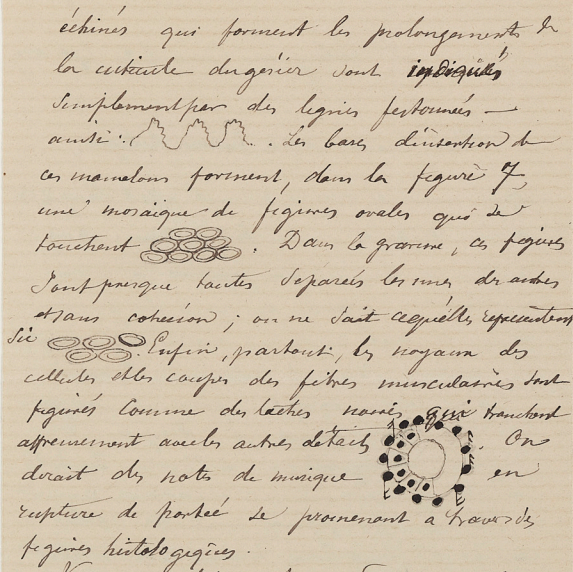 échinés qui forment les prolongements de
la cuticule du gésier sont indiqués
simplement par des lignes festonnées —
ainsi : . Les bases d'insertion de
ces mamelons forment, dans la figure 7,
une mosaïque de figures ovales qui se
touchent . Dans la gravure, ces figures
sont presque toutes séparées les unes des autres
et sans cohésion ; on ne sait ce qu'elles représentent
sic . Enfin, partout, les noyaux des
cellules et les coupes des fibres musculaires sont
figurés comme des taches noires qui tranchent
affreusement avec les autres détails . On
dirait des notes de musique en
rupture de portée se promenant à travers des
figures histologiques.